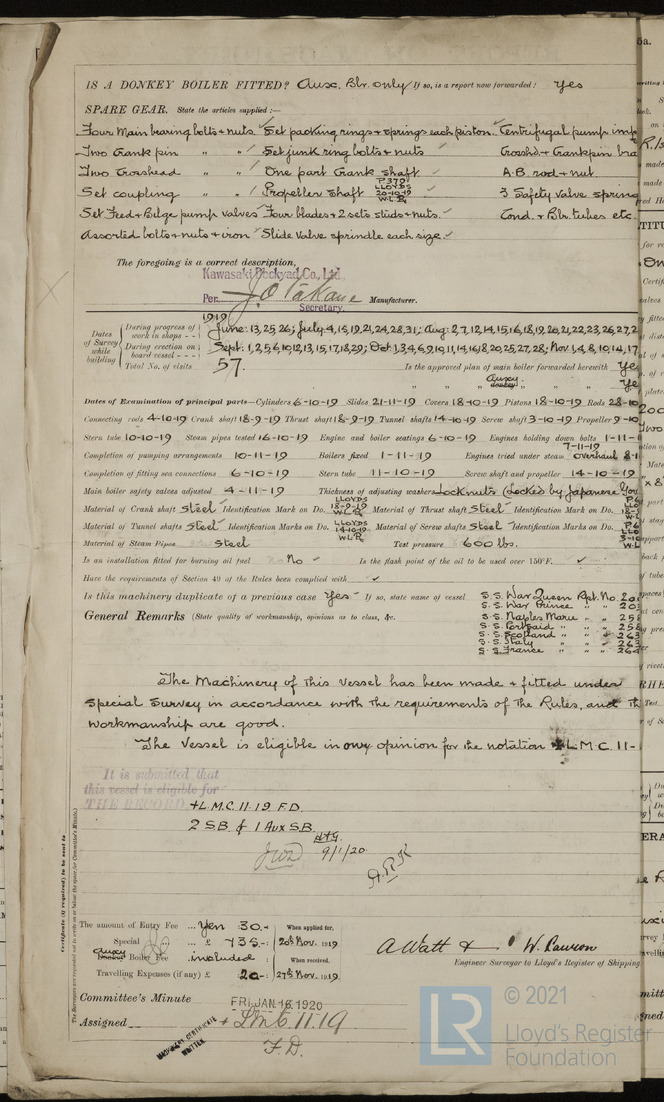 IS A DONKEY BOILER FITTED? Aux. Blr. only If so, is a report now forwarded? Yes
SPARE GEAR. State the articles supplied :—
Four Main bearing bolts & nuts. Set packing rings & springs each piston. Centrifugal pump imp
Two Crank pin " " Set junk ring bolts & nuts Crosshd. & Crankpin bra
Two Crosshead " " One part Crank shaft A.B. rod & nut
Set coupling " " Propeller shaft P379 LLOYDS 20-10-19 W.L.R. 3 Safety valve spring
Set Feed & Bilge pump valves Four blades & 2 sets studs & nuts. Cond. & Blr. tubes etc.
Assorted bolts & nuts & iron Slide valve spindle each size.
The foregoing is a correct description,
Kawasaki Dockyard Co., Ltd
Per. J.O. Takane Manufacturer.
Secretary.
1919
Dates of Survey while building
During progress of work in shops - - June: 13, 25, 26; July 4, 15, 19, 21, 24, 28, 31; Aug: 2, 7, 12, 14, 15, 16, 18, 19, 20, 21, 22, 23, 26, 27, 2
During erection on board vessel - - - Sept: 1, 2, 5, 6, 10, 12, 13, 15, 17, 18, 29; Oct 1, 3, 4, 6, 9, 10, 11, 14, 16, 18, 20, 25, 27, 28; Nov 1, 4, 8, 10, 14, 17
Total No. of visits 57. Is the approved plan of main boiler forwarded herewith Ye
" " " Auxy. donkey " " " Ye
Dates of Examination of principal parts—Cylinders 6-10-19 Slides 21-11-19 Covers 18-10-19 Pistons 18-10-19 Rods 28-10
Connecting rods 4-10-19 Crank shaft 18-9-19 Thrust shaft 18-9-19 Tunnel shafts 14-10-19 Screw shaft 3-10-19 Propeller 9-10
Stern tube 10-10-19 Steam pipes tested 16-10-19 Engine and boiler seatings 6-10-19 Engines holding down bolts 1-11-1
Completion of pumping arrangements 10-11-19 Boilers fixed 1-11-19 Engines tried under steam 7-11-19 overhaul 8-1
Completion of fitting sea connections 6-10-19 Stern tube 11-10-19 Screw shaft and propeller 14-10-19
Main boiler safety valves adjusted 4-11-19 Thickness of adjusting washers Locknuts (Locked by Japanese Gov
Material of Crank shaft Steel Identification Mark on Do. LLOYDS 18-9-19 W.L.R. Material of Thrust shaft Steel Identification Marks on Do.
Material of Tunnel shafts Steel Identification Marks on Do. LLOYDS 14-10-19 W.L.R. Material of Screw shafts Steel Identification Marks on Do.
Material of Steam Pipes Steel Test pressure 600 lbs.
Is an installation fitted for burning oil fuel No Is the flash point of the oil to be used over 150°F.
Have the requirements of Section 49 of the Rules been complied with
Is this machinery duplicate of a previous case Yes If so, state name of vessel S.S. War Queen Rpt. No. 20
S.S. War Prince " " 20
General Remarks (State quality of workmanship, opinions as to class, &c. S.S. Naples Maru " " 25
S.S. Portsaid " " 25
S.S. Scotland " " 263
S.S. Italy " " 263
S.S. France " " 264
The Machinery of this vessel has been made & fitted under
Special Survey in accordance with the requirements of the Rules, and th
workmanship are good.
The Vessel is eligible in our opinion for the notation ✠L.M.C. 11-
It is submitted that
this vessel is eligible for
THE RECORD
+L.M.C. 11.19 F.D.
2 S.B. & 1 Aux S.B.
9/1/20
Certificate (if required) to be sent to
The Surveyors are requested not to write on or below the space for Committee's Minute.
The amount of Entry Fee ... Yen 30.- : When applied for,
Special ... £ 735.- : 20th Nov. 1919
Auxy Donkey Boiler Fee included : When received,
Travelling Expenses (if any) £ 20.- : 27th Nov. 1919.
A Watt & W. Rawson
Engineer Surveyor to Lloyd's Register of Shipping
Committee's Minute FRI. JAN. 16. 1920
Assigned + LMC 11.19
F.D.
MACHINERY CERTIFICATE WRITTEN
LR
© 2021
Lloyd's Register
Foundation